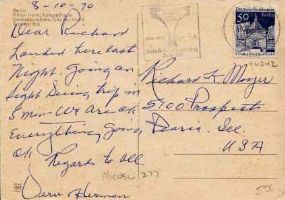 8-10-70
Berlin
Dear Richard
Landed here last
Night. Going on
Sight Seeing trip in
5 min - We are ok
Everything going
ok Regards to all
Herman
50
Richard K. Mozer
5700 Prospect
Peoria. Ill.
USA
MICHEL 277